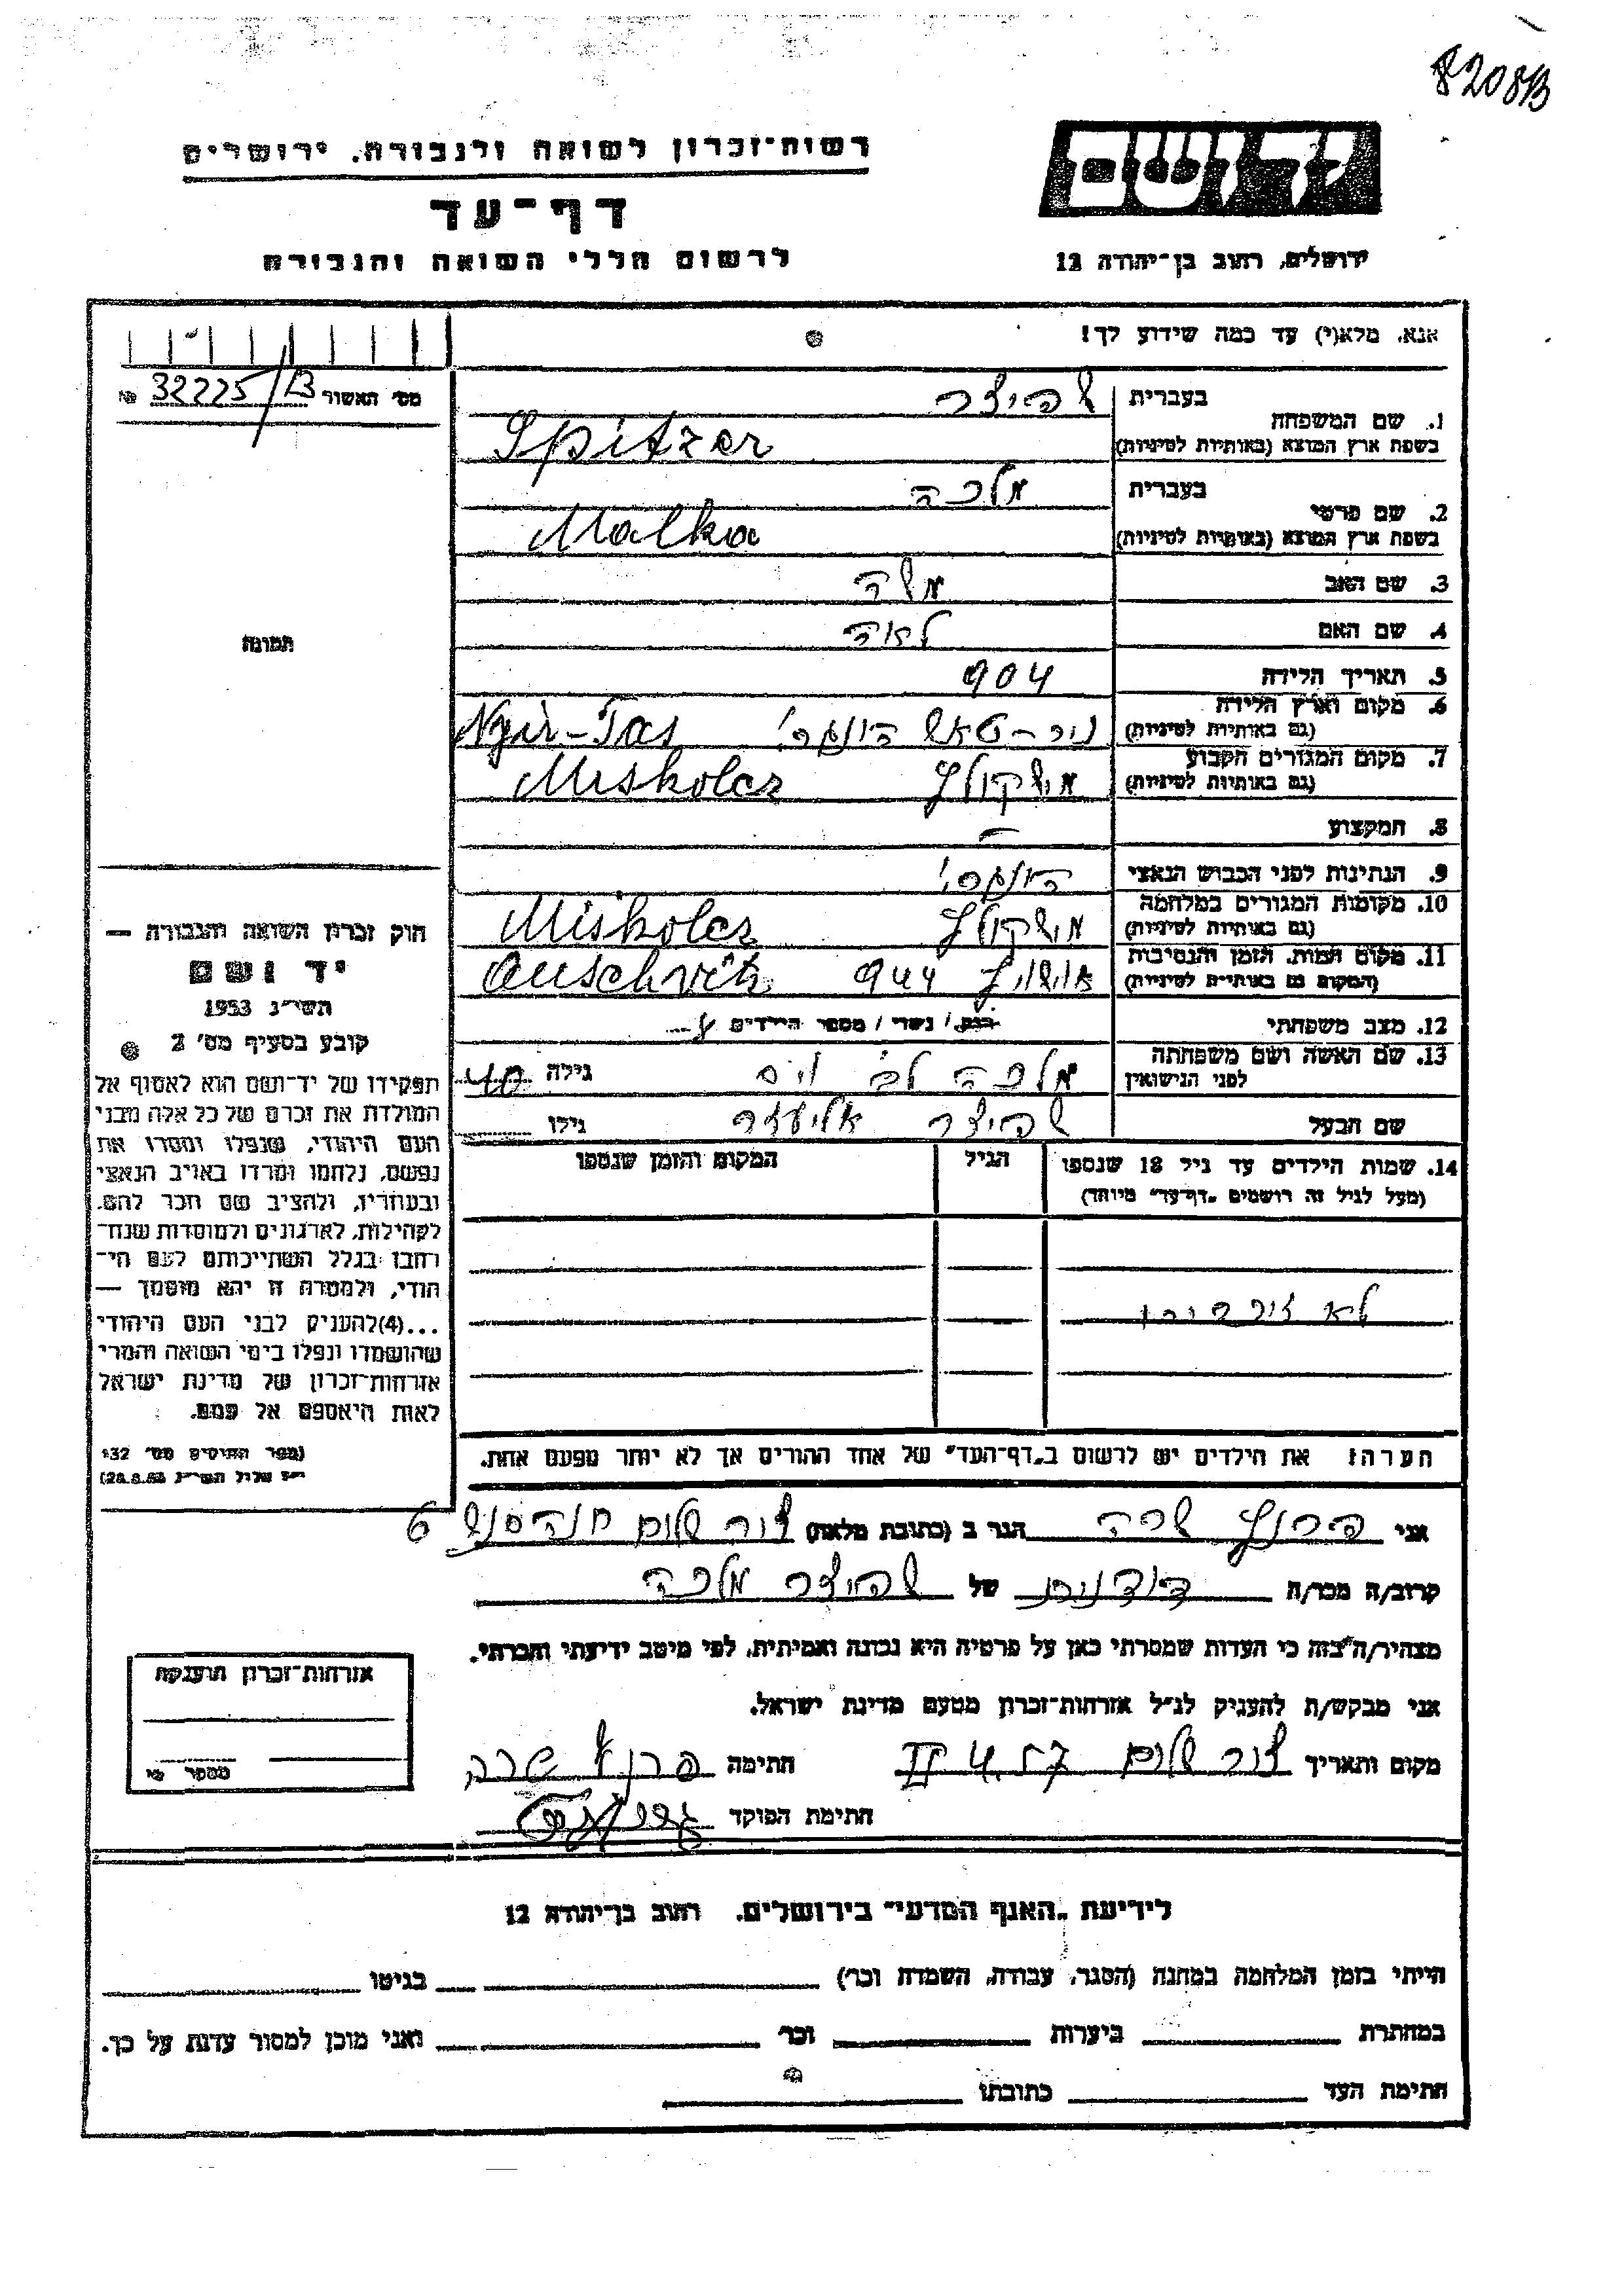 8208B
יד ושם
רשות־זכרון לשואה ולגבורה, ירושלים
דף־עד
לרשום חללי השואה והגבורה
ירושלים, רחוב בן־יהודה 12
אנא, מלא(י) עד כמה שידוע לך!
מס׳ האשור 32225/B №
1. שם המשפחה בעברית שפיצר
בשפת ארץ המוצא (באותיות לטיניות) Spitzer
2. שם פרטי בעברית מלכה
בשפת ארץ המוצא (באותיות לטיניות) Malka
3. שם האב משה
4. שם האם לאה
5. תאריך הלידה 904
6. מקום וארץ הלידה (גם באותיות לטיניות) ניר־טאש הונגרי Nyir-Tas
7. מקום המגורים הקבוע (גם באותיות לטיניות) מישקולץ Miskolcz
8. המקצוע —
9. הנתינות לפני הכבוש הנאצי הונגרי
10. מקומות המגורים במלחמה (גם באותיות לטיניות) מישקולץ Miskolcz
11. מקום המות, הזמן והנסיבות (המקום גם באותיות לטיניות) אושויץ 944 Auschvitz
12. מצב משפחתי רווק / נשוי / מספר הילדים
13. שם האשה ושם משפחתה לפני הנישואין מלכה לב׳ ויס גילה 40
שם הבעל שפיצר אליעזר גילו
14. שמות הילדים עד גיל 18 שנספו הגיל המקום והזמן שנספו
(מעל לגיל זה רושמים „דף־עד״ מיוחד)
לא
הערה: את הילדים יש לרשום ב„דף־העד״ של אחד ההורים אך לא יותר מפעם אחת.
תמונה
חוק זכרון השואה והגבורה —
יד ושם
תשי״ג 1953
קובע בסעיף מס׳ 2
תפקידו של יד־ושם הוא לאסוף אל
המולדת את זכרם של כל אלה מבני
העם היהודי, שנפלו ומסרו את
נפשם, נלחמו ומרדו באויב הנאצי
ובעוזריו, ולהציב שם וזכר להם,
לקהילות, לארגונים ולמוסדות שנח־
רבו בגלל השתייכותם לעם הי־
הודי, ולמטרה זו יהא מוסמך —
...(4) להעניק לבני העם היהודי
שהושמדו ונפלו בימי השואה והמרי
אזרחות־זכרון של מדינת ישראל
לאות היאספם אל עמם.
(ספר החוקים מס׳ 132
י״ז אלול תשי״ג 28.8.53)
אני שרה הגר ב (כתובת מלאה) צור שלום 6
קרוב/ה מכר/ה של שפיצר מלכה
מצהיר/ה בזה כי העדות שמסרתי כאן על פרטיה היא נכונה ואמיתית, לפי מיטב ידיעתי והכרתי.
אני מבקש/ת להעניק לנ״ל אזרחות־זכרון מטעם מדינת ישראל.
מקום ותאריך צור שלום חתימה שרה
חתימת הפוקד
אזרחות־זכרון הוענקה
מספר
לידיעת „האגף המדעי״ בירושלים, רחוב בן־יהודה 12
הייתי בזמן המלחמה במחנה (הסגר, עבודה, השמדה וכו׳) בגיטו
במחתרת ביערות וכו׳ ואני מוכן למסור עדות על כך.
חתימת העד כתובתו